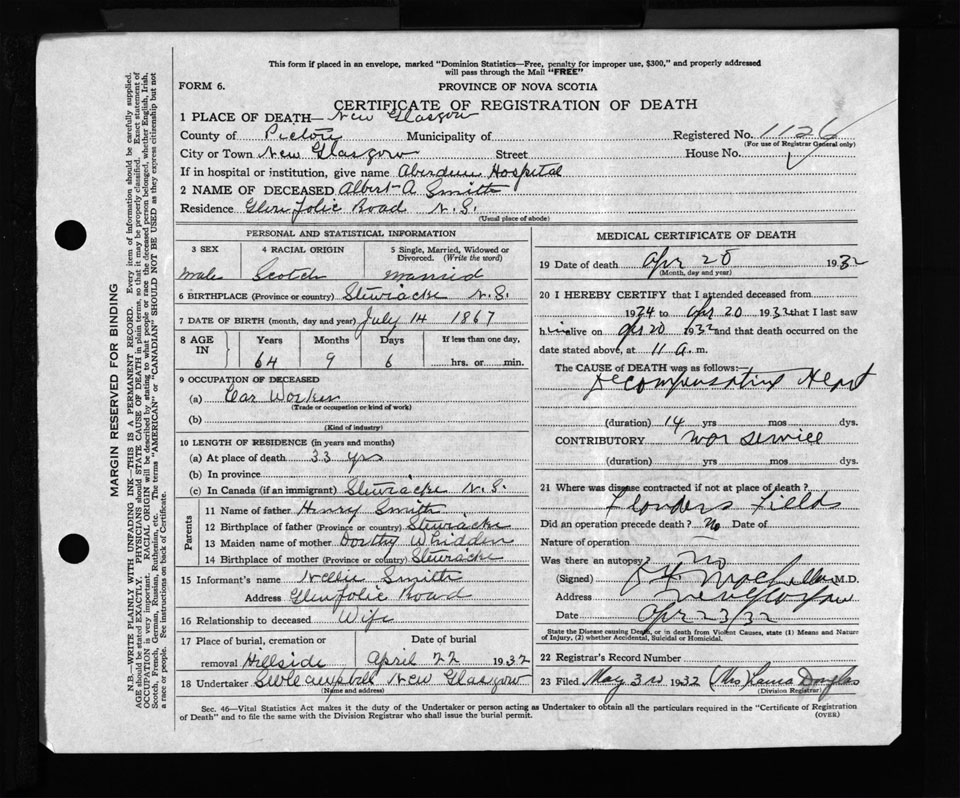 This form if placed in an envelope, marked "Dominion Statistics—Free, penalty for improper use, $300," and properly addressed
will pass through the Mail "FREE"
FORM 6.
PROVINCE OF NOVA SCOTIA
CERTIFICATE OF REGISTRATION OF DEATH
1 PLACE OF DEATH— New Glasgow
County of Pictou Municipality of Registered No. 1126
(For use of Registrar General only)
City or Town New Glasgow Street House No.
If in hospital or institution, give name Aberdeen Hospital
2 NAME OF DECEASED Albert A Smith
Residence Glen Folie Road N.S.
(Usual place of abode)
PERSONAL AND STATISTICAL INFORMATION
3 SEX 4 RACIAL ORIGIN 5 Single, Married, Widowed or
Divorced. (Write the word)
Male Scotch Married
6 BIRTHPLACE (Province or country) Stewiacke N.S.
7 DATE OF BIRTH (month, day and year) July 14 1867
8 AGE IN Years Months Days If less than one day,
64 9 6 hrs. or min.
9 OCCUPATION OF DECEASED
(a) Car Worker
(Trade or occupation or kind of work)
(b)
(Kind of industry)
10 LENGTH OF RESIDENCE (in years and months)
(a) At place of death 33 yrs
(b) In province
(c) In Canada (if an immigrant) Stewiacke N.S.
Parents
11 Name of father Henry Smith
12 Birthplace of father (Province or country) Stewiacke
13 Maiden name of mother Dorthy Whidden
14 Birthplace of mother (Province or country) Stewiacke
15 Informant's name Nellie Smith
Address Glen Folie Road
16 Relationship to deceased Wife
17 Place of burial, cremation or Date of burial
removal Hillside April 22 1932
18 Undertaker Campbell New Glasgow
(Name and address)
MEDICAL CERTIFICATE OF DEATH
19 Date of death Apr 20 1932
(Month, day and year)
20 I HEREBY CERTIFY that I attended deceased from
1924 to Apr 20 1932 that I last saw
him alive on Apr 20 1932 and that death occurred on the
date stated above, at 11 a. m.
The CAUSE of DEATH was as follows:—
Decompensating Heart
(duration) 14 yrs mos dys.
CONTRIBUTORY War service
(duration) yrs mos dys.
21 Where was disease contracted if not at place of death?
Flanders Fields
Did an operation precede death? No Date of
Nature of operation
Was there an autopsy? No
(Signed) M.D.
Address New Glasgow
Date Apr 23/32
State the Disease causing Death, or in death from Violent Causes, state (1) Means and Nature
of Injury, (2) whether Accidental, Suicidal or Homicidal.
22 Registrar's Record Number
23 Filed May 3rd 1932 (Mrs) Douglas
(Division Registrar)
Sec. 46—Vital Statistics Act makes it the duty of the Undertaker or person acting as Undertaker to obtain all the particulars required in the "Certificate of Registration
of Death" and to file the same with the Division Registrar who shall issue the burial permit.
(OVER)
MARGIN RESERVED FOR BINDING
N.B.—WRITE PLAINLY WITH UNFADING INK.—THIS IS A PERMANENT RECORD. Every item of information should be carefully supplied.
AGE should be stated EXACTLY. PHYSICIANS should STATE CAUSE OF DEATH in plain terms, so that it may be properly classified. Exact statement of
OCCUPATION is very important. RACIAL ORIGIN will be described by stating to what people or race the deceased person belonged, whether English, Irish,
Scotch, French, German, Russian, Ruthenian, etc. The terms "AMERICAN" or "CANADIAN" SHOULD NOT BE USED as they express citizenship but not
a race or people. See instructions on back of Certificate.